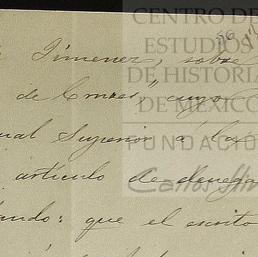 CENTRO DE
ESTUDIOS
DE HISTORIA
DE MEXICO
FUNDACIÓN
Carlos Slim
Jimenez, sobre
de Cruces," cuyo
Superior a las
articulo de denega
: que el escrito